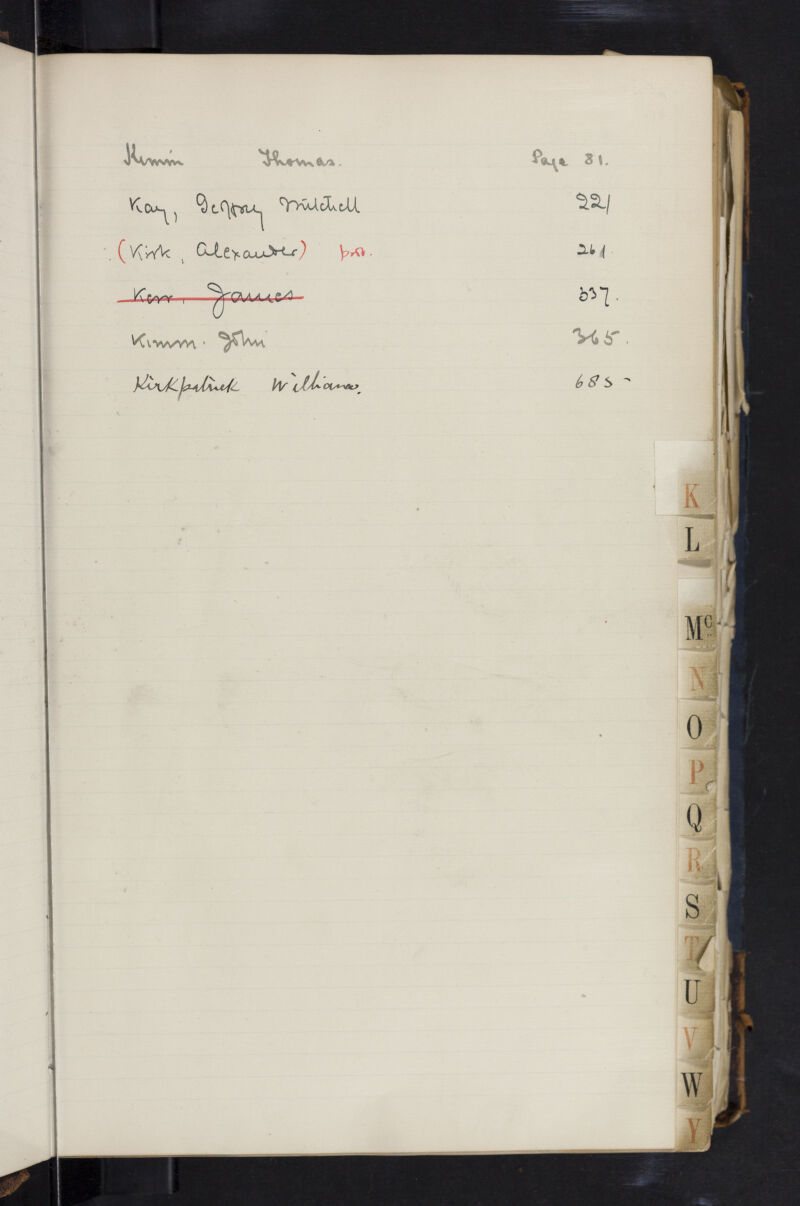 Kimm Thomas. Page 81.
Kay, Mitchell 221
(Kirk, Alexander) prob. 261
Kerr, James 337.
Kimm. John 365.
Kirkpatrick William. 685-
K
L
Mc
N
O
P
Q
R
S
T
U
V
W
Y